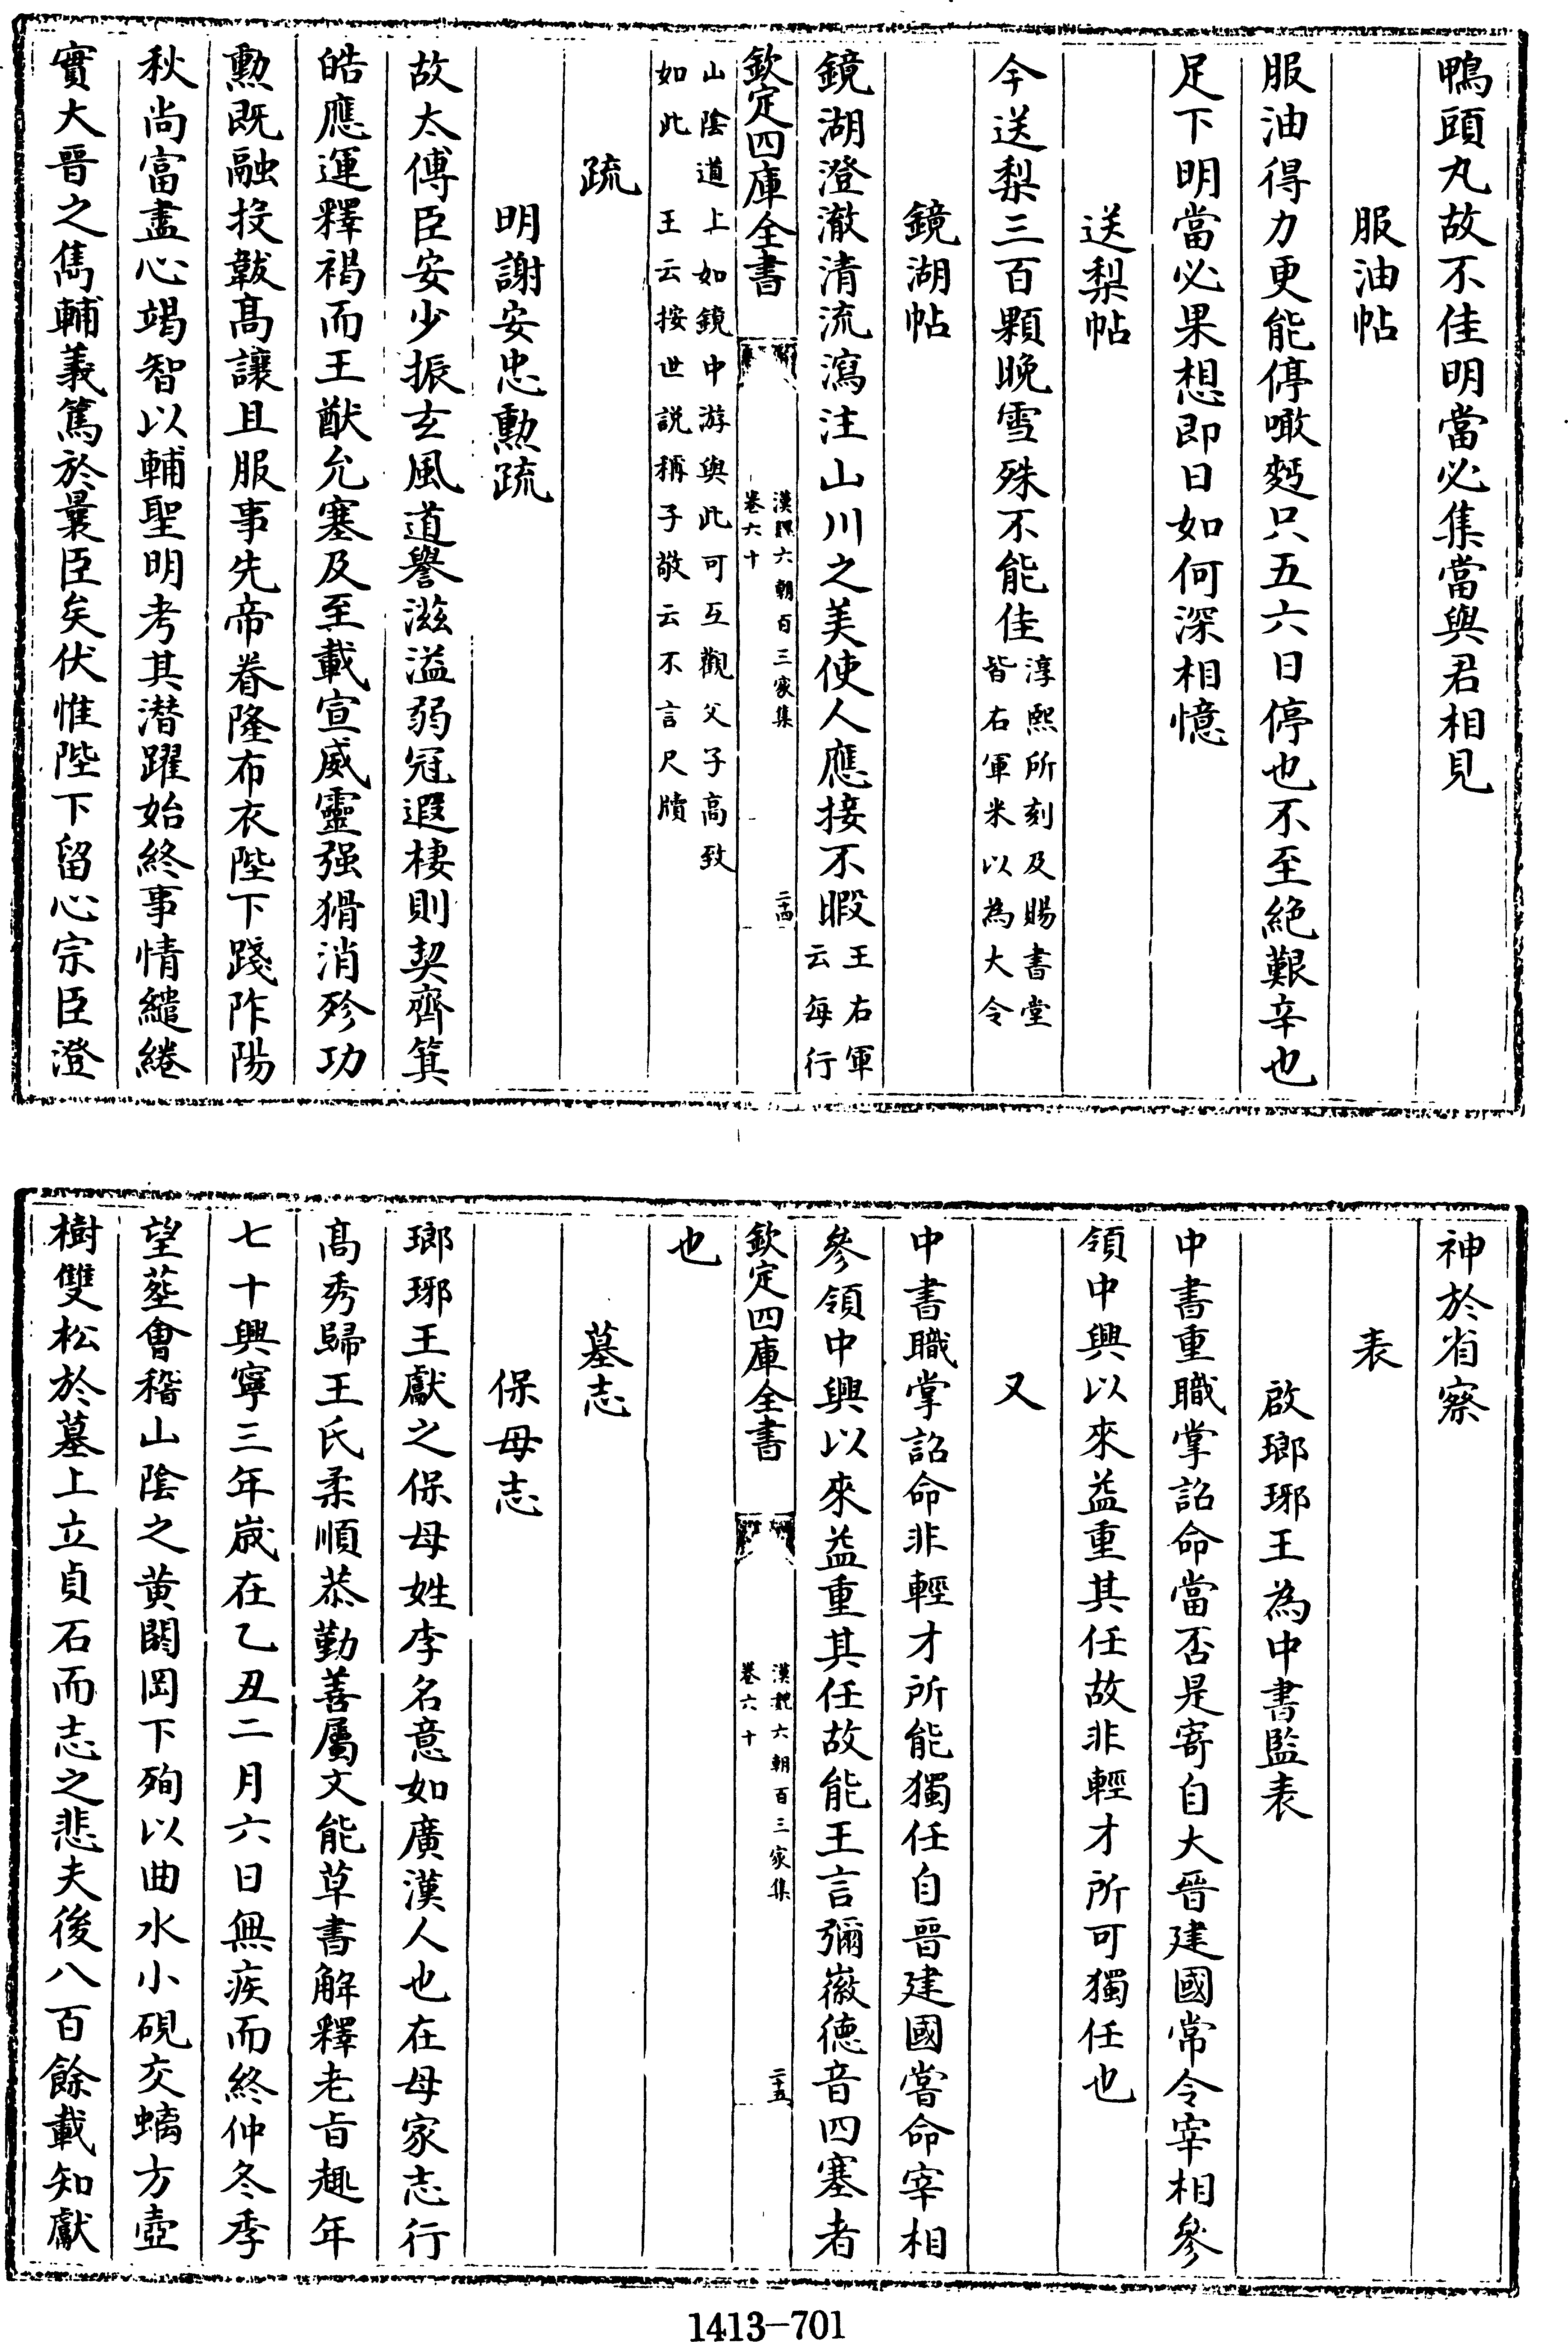 鴨頭丸故不佳明當必集當與君相見
服油帖
服油得力更能停噉麫只五六日停也不至絶艱辛也
足下明當必果想即日如何深相憶
送梨帖
今送梨三百顆晚雪殊不能佳淳熙所刻及賜書堂
皆右軍米以為大令
鏡湖帖
鏡湖澄澈清流瀉注山川之美使人應接不暇王右軍
云每行
欽定四庫全書
漢魏六朝百三家集
卷六十
二十四
山陰道上如鏡中游與此可互觀父子高致
如此 王云按世説稱子敬云不言尺牘
疏
明謝安忠勲疏
故太傅臣安少振玄風道譽滋溢弱冠遐棲則契齊箕
皓應運釋褐而王猷允塞及至載宣威靈强猾消殄功
勲既融投韍髙讓且服事先帝眷隆布衣陛下踐阼陽
秋尚富盡心竭智以輔聖明考其潜躍始終事情繾綣
實大晉之儁輔義篤於曩臣矣伏惟陛下留心宗臣澄
神於省察
表
啟瑯琊王為中書監表
中書重職掌詔命當否是寄自大晉建國常令宰相參
領中興以來益重其任故非輕才所可獨任也
又
中書職掌詔命非輕才所能獨任自晉建國嘗命宰相
參領中興以來益重其任故能王言彌徽德音四塞者
欽定四庫全書
漢魏六朝百三家集
卷六十
二十五
也
墓志
保母志
瑯琊王獻之保母姓李名意如廣漢人也在母家志行
髙秀歸王氏柔順恭勤善屬文能草書解釋老旨趣年
七十興寧三年歲在乙丑二月六日無疾而終仲冬季
望塟會稽山陰之黄閍岡下殉以曲水小硯交螭方壺
樹雙松於墓上立貞石而志之悲夫後八百餘載知獻
1413-701